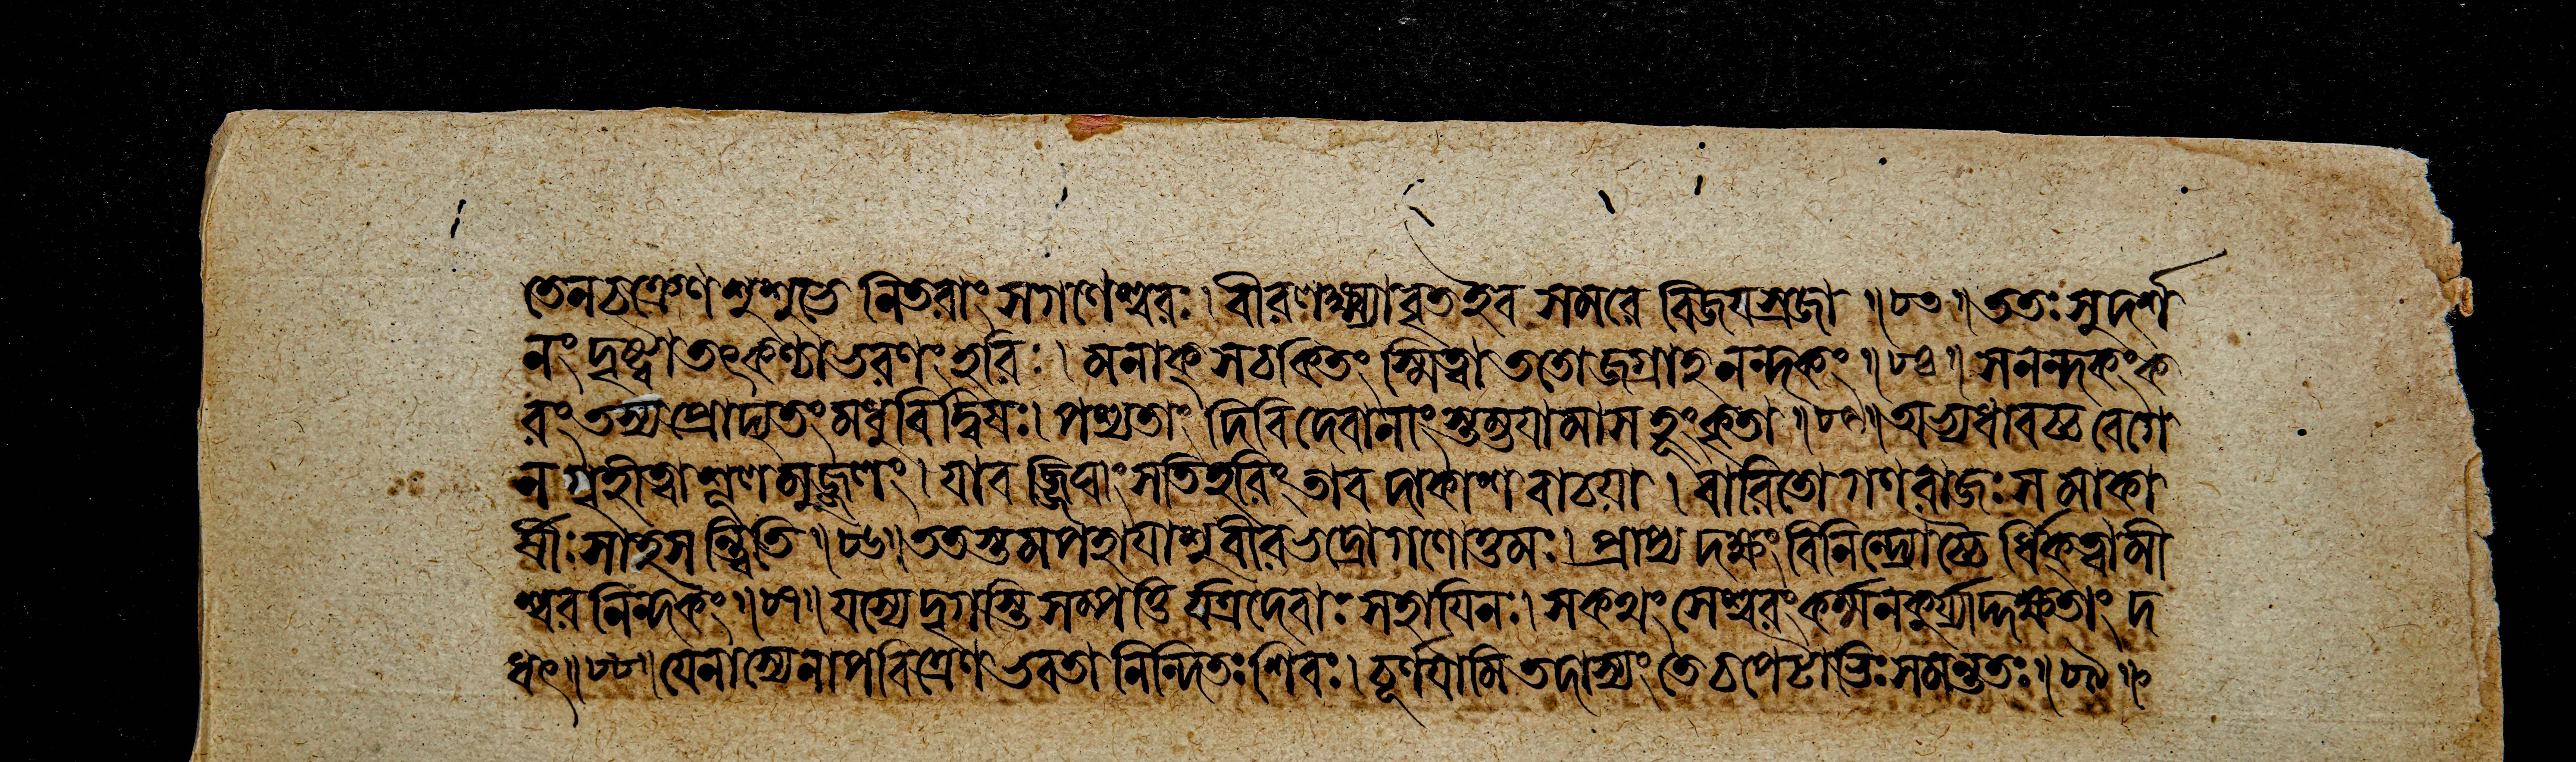 তেনচক্রেণ শুশুভে নিতরাং সগণেশ্বরঃ। বীরলক্ষ্ম্যাবৃতইব সমরে বিজযস্রজা ॥৮৩॥ ততঃ সুদর্শ
নং দৃষ্ট্বা তৎকণ্ঠাভরণং হরিঃ। মনাক্ সচকিতং স্মিত্বা ততোজগ্রাহ নন্দকং ॥৮৪॥ সনন্দকংক
রং তস্য প্রোদ্যতং মধুবিদ্বিষঃ। পশ্যতাং দিবি দেবানাং স্তম্ভযামাস হূংকৃতা ॥৮৫॥ অভ্যধাবচ্চ বেগে
ন গৃহীত্বা শূলমুজ্জ্বলং। যাব জ্জিঘাংসতি হরিং তাব দাকাশ বাচযা। বারিতো গণরাজঃ স মাকা
র্ষীঃ সাহসন্ত্বিতি ॥৮৬॥ ততস্তমপহাযাশু বীরভদ্রো গণোত্তমঃ। প্রাপ্য দক্ষং বিনিন্দ্যোচ্চৈ র্ধিক্ত্বামী
শ্বর নিন্দকং ॥৮৭॥ যস্যেদৃগস্তি সম্পত্তি র্যত্রদেবাঃ সহাযিনঃ। সকথং সেশ্বরংকর্ম্মনকুর্য্যাদ্দক্ষতাং দ
ধৎ ॥৮৮॥ যেনাস্যেনাপবিত্রেণ ভবতা নিন্দিতঃ শিবঃ। চূর্ণযামি তদাস্যং তে চপেটাভিঃ সমন্ততঃ ॥৮৯॥ই